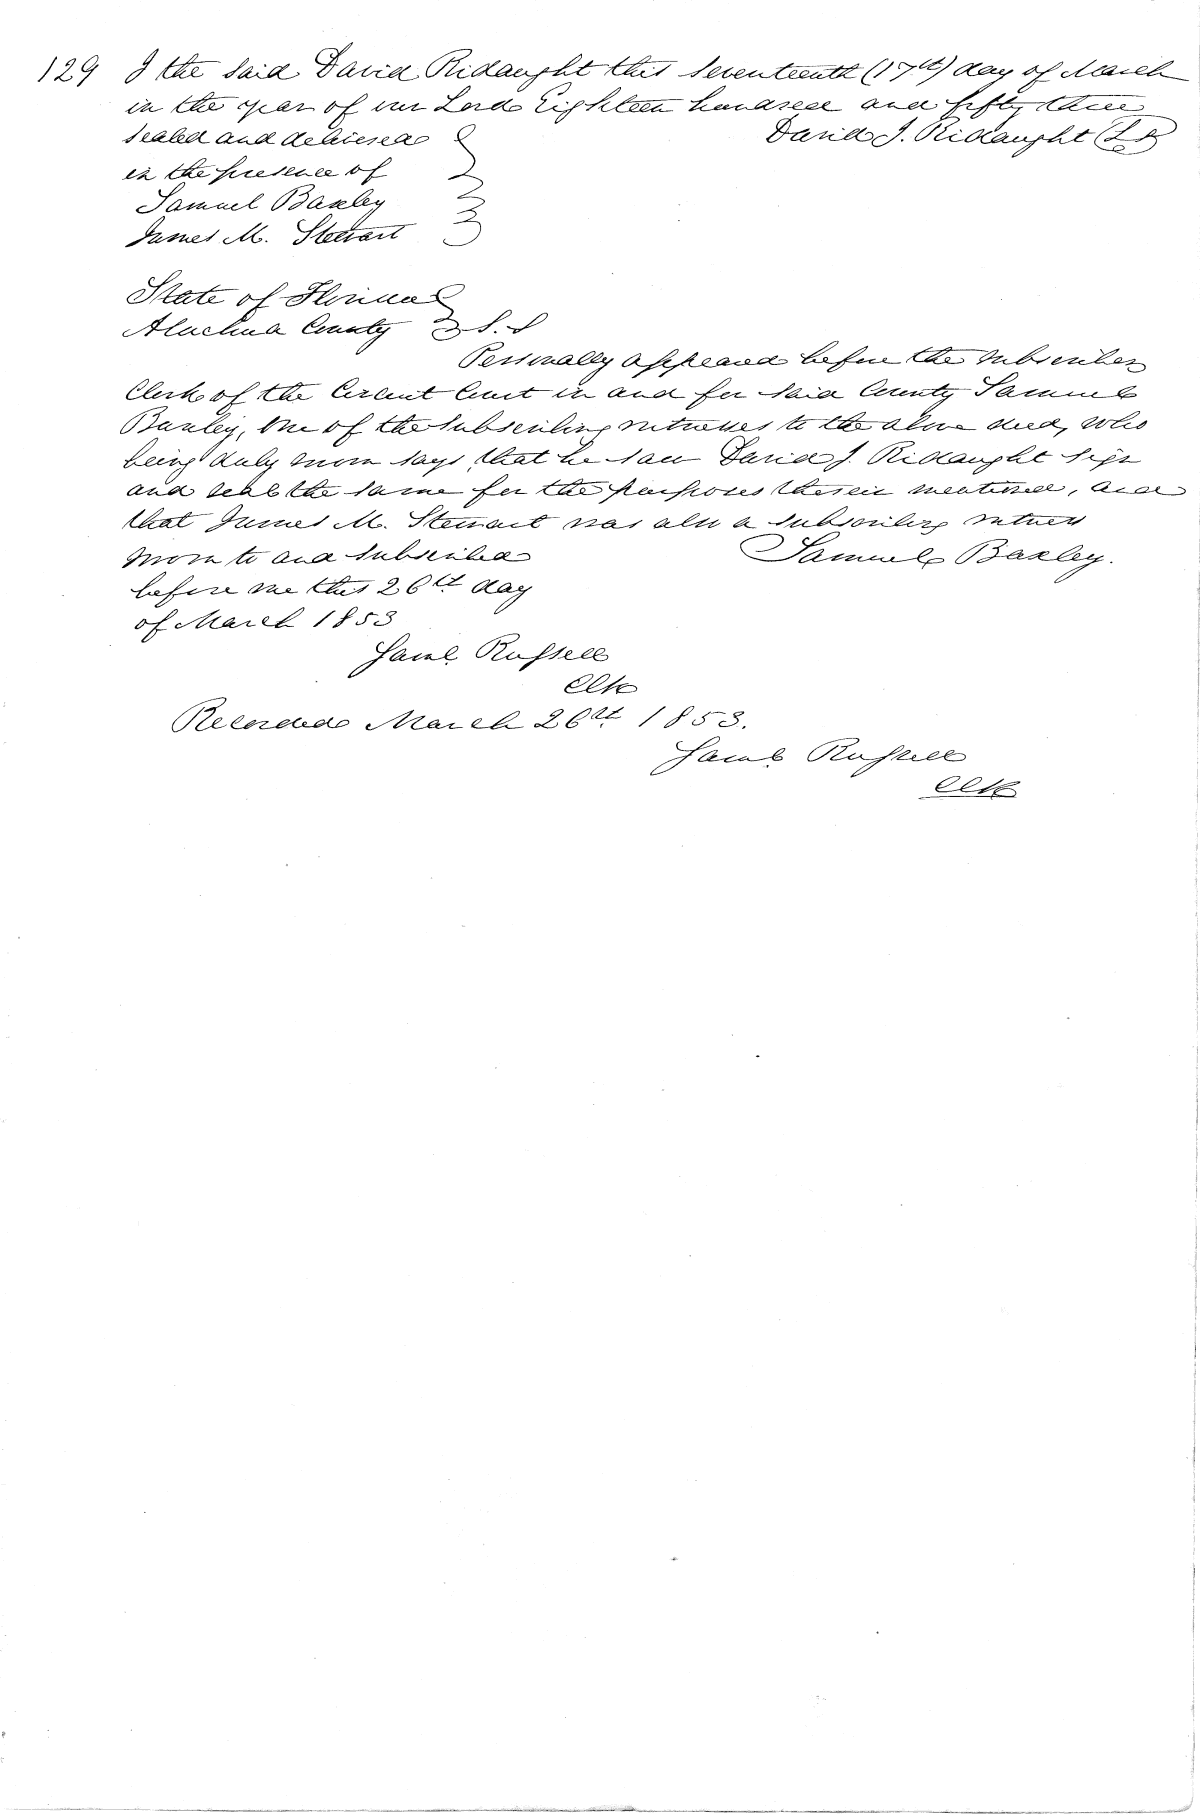 129 I the said David Ridaught this seventeenth (17th) day of March
in the year of our Lord Eighteen hundred and fifty three
sealed and delivered David J. Ridaught (L S)
in the presence of
Samuel Baxley
James M. Stewart
State of Florida
Alachua County S.S
Personally appeared before the subscriber
Clerk of the Circuit Court in and for said County Samuel
Baxley, one of the subscribing witnesses to the above deed, who
being duly sworn says that he saw David J. Ridaught sign
and seal the same for the purposes therein mentioned, and
that James M. Stewart was also a subscribing witness
sworn to and subscribed Samuel Baxley.
before me this 26th day
of March 1853
Saml Russell
Clk
Recorded March 26th 1853.
Saml Russell
Clk